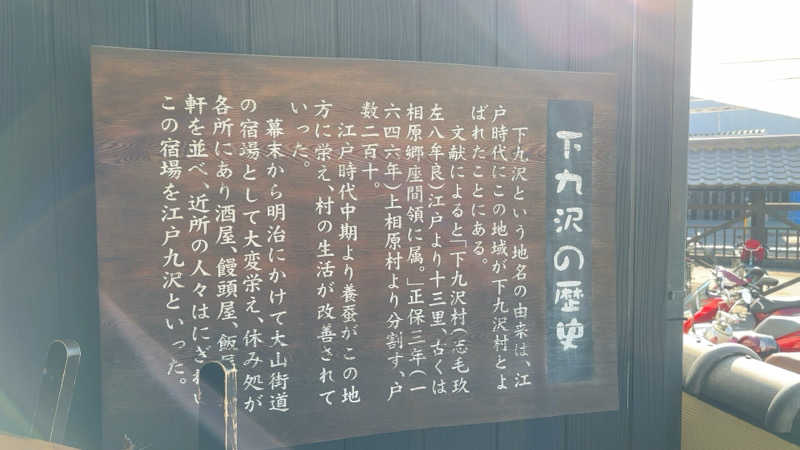 下九沢の歴史
下九沢という地名の由来は、江
戸時代にこの地域が下九沢村とよ
ばれたことにある。
文献によると「下九沢村(志毛玖
左八牟良)江戸より十三里、古くは
相原郷座間領に属。」正保三年(一
六四六年)上相原村より分割す、戸
数二百十。
江戸時代中期より養蚕がこの地
方に栄え、村の生活が改善されて
いった。
幕末から明治にかけて大山街道
の宿場として大変栄え、休み処が
各所にあり酒屋、饅頭屋、飯
軒を並べ、近所の人々はにぎわ
この宿場を江戸九沢といった。